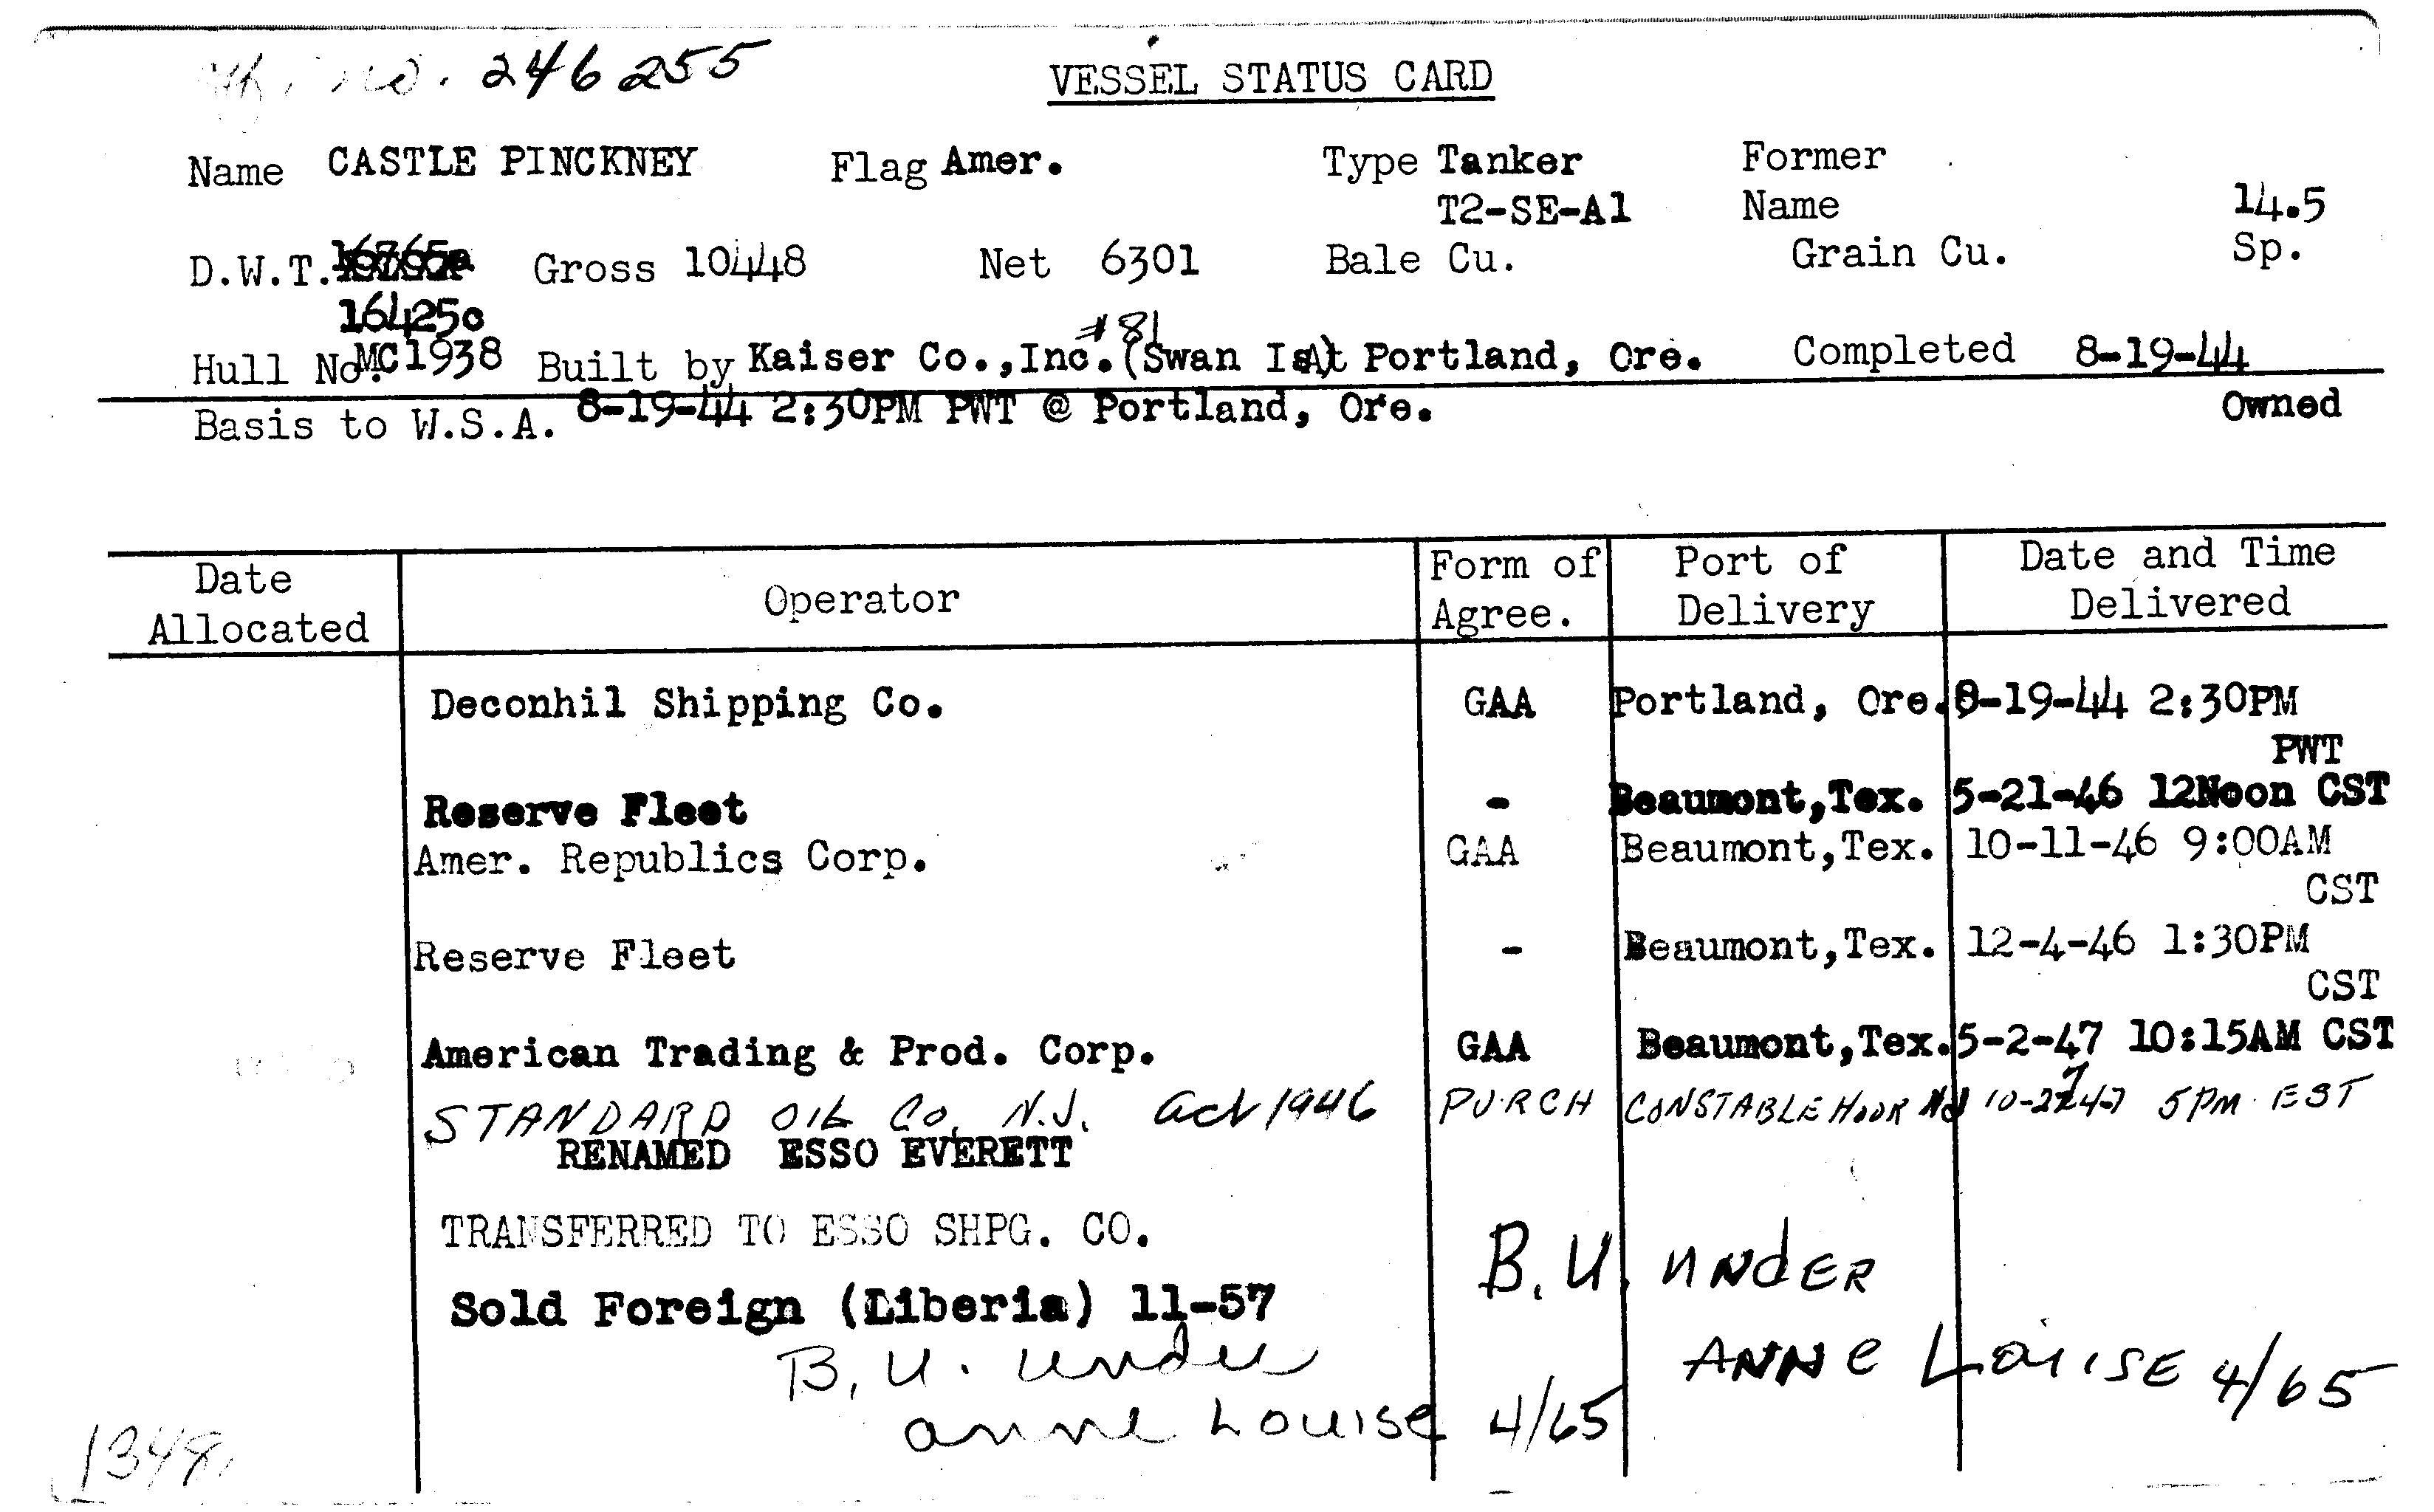 No. 246255
VESSEL STATUS CARD
Name CASTLE PINCKNEY Flag Amer. Type Tanker Former
T2-SE-A1 Name 14.5
D.W.T. Gross 10448 Net 6301 Bale Cu. Grain Cu. Sp.
16425c
#81
Hull No. MC1938 Built by Kaiser Co.,Inc.(Swan Isl) At Portland, Ore. Completed 8-19-44
Basis to W.S.A. 8-19-44 2:30PM PWT @ Portland, Ore. Owned
Date Allocated Operator Form of Agree. Port of Delivery Date and Time Delivered
Deconhil Shipping Co. GAA Portland, Ore. 8-19-44 2:30PM
PWT
Reserve Fleet - Beaumont,Tex. 5-21-46 12Noon CST
Amer. Republics Corp. GAA Beaumont,Tex. 10-11-46 9:00AM
CST
Reserve Fleet - Beaumont,Tex. 12-4-46 1:30PM
CST
American Trading & Prod. Corp. GAA Beaumont,Tex. 5-2-47 10:15AM CST
STANDARD OIL Co. N.J. Act 1946 PURCH CONSTABLE HOOK NJ 10-27-47 5PM EST
RENAMED ESSO EVERETT
TRANSFERRED TO ESSO SHPG. CO.
B.U. UNDER
Sold Foreign (Liberia) 11-57
ANNE LOUISE 4/65
B.U. under
anne Louise 4/65
1348